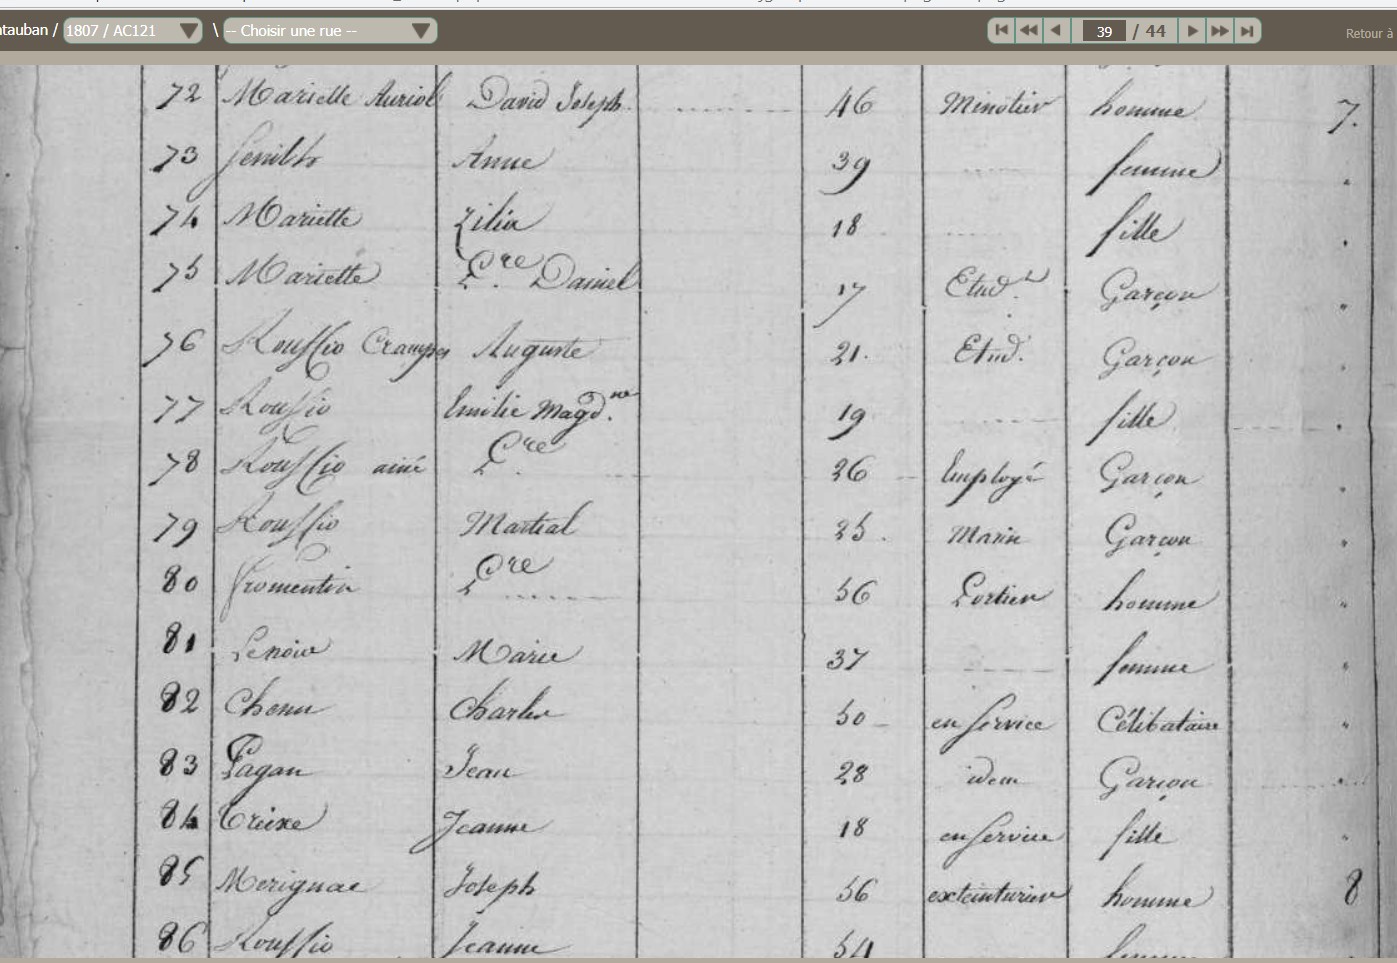 ntauban / 1807 / AC121 \ -- Choisir une rue -- 39 / 44 Retour à
72 Mariette Auriol David Joseph. 46 Minotier homme 7.
73 Genilh Anne 39 femme
74 Mariette Zilia 18 fille
75 Mariette Pre. Daniel 17 Etudt. Garçon
76 Rouffio Crampes Auguste 21. Etud. Garçon
77 Rouffio Emilie Magdne. 19 fille
78 Rouffio ainé Pre. 26 Employé Garçon
79 Rouffio Martial 25. Marin Garçon
80 Fromentin Pre 56 Portier homme
81 Lenoir Marie 37 femme
82 Chenu Charles 50 en Service Célibataire
83 Pagan Jean 28 idem Garçon
84 Jeanne 18 en Service fille
85 Merignac Joseph 56 exteinturier homme 8
86 Rouffio Jeanne 54